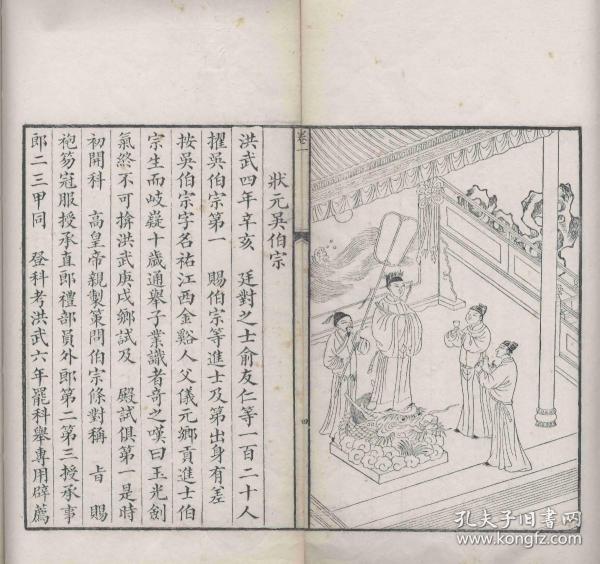 卷一
四
狀元吳伯宗
洪武四年辛亥　廷對之士俞友仁等一百二十人
擢吳伯宗第一　賜伯宗等進士及第出身有差
按吳伯宗字名祐江西金谿人父儀元鄉貢進士伯
宗生而岐嶷十歲通舉子業識者奇之嘆曰玉光劍
氣終不可掩洪武庚戌鄉試及　殿試俱第一是時
初開科　高皇帝親製策問伯宗條對稱　旨　賜
袍笏冠服授承直郎禮部員外郎第二第三授承事
郎二三甲同　登科考洪武六年罷科舉專用辟薦
孔夫子旧書网
www.kongfz.com